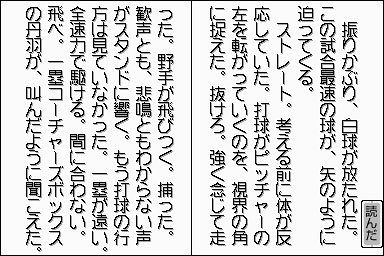 振りかぶり、白球が放たれた。
この試合最速の球が、矢のように
迫ってくる。
ストレート。考える前に体が反
応していた。打球がピッチャーの
左を転がっていくのを、視界の角
に捉えた。抜けろ。強く念じて走
った。野手が飛びつく。捕った。
歓声とも、悲鳴ともわからない声
がスタンドに響く。もう打球の行
方は見ていなかった。一塁が遠い。
全速力で駆ける。間に合わない。
飛べ。一塁コーチャーズボックス
の丹羽が、叫んだように聞こえた。
読んだ